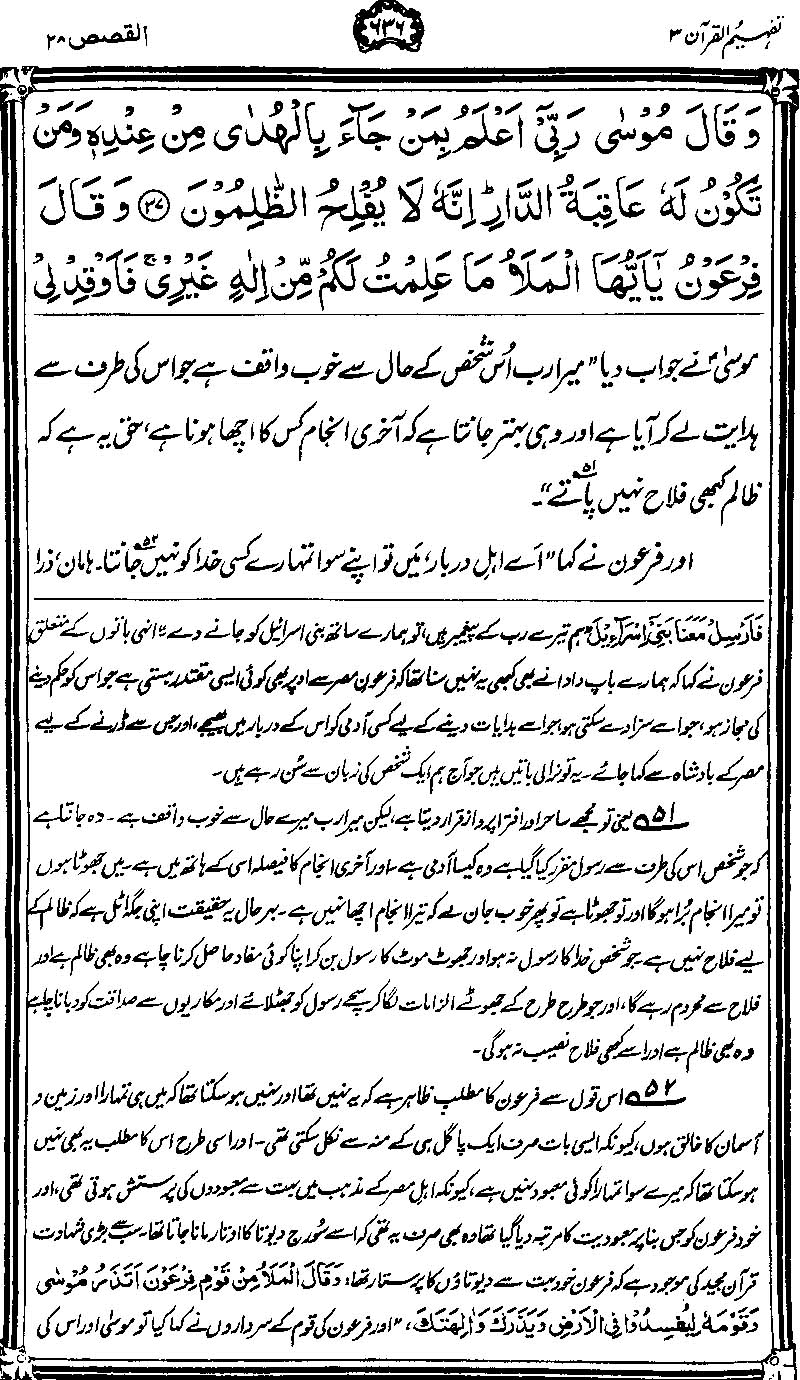 تفہیم القرآن ۳
۶۳۶
القصص ۲۸
وَقَالَ مُوْسٰی رَبِّیْۤ اَعْلَمُ بِمَنْ جَآءَ بِالْهُدٰی مِنْ عِنْدِهٖ وَمَنْ
تَكُوْنُ لَهٗ عَاقِبَةُ الدَّارِ ؕ اِنَّهٗ لَا یُفْلِحُ الظّٰلِمُوْنَ ﴿۳۷﴾ وَقَالَ
فِرْعَوْنُ یٰۤاَیُّهَا الْمَلَاُ مَا عَلِمْتُ لَكُمْ مِّنْ اِلٰهٍ غَیْرِیْ ۚ فَاَوْقِدْ لِیْ
موسیٰؑ نے جواب دیا ”میرا رب اُس شخص کے حال سے خوب واقف ہے جو اس کی طرف سے
ہدایت لے کر آیا ہے اور وہی بہتر جانتا ہے کہ آخری انجام کس کا اچھا ہونا ہے، حق یہ ہے کہ
ظالم کبھی فلاح نہیں پاتے۵۱“۔
اور فرعون نے کہا ”اَے اہلِ دربار، مَیں تو اپنے سوا تمہارے کسی خدا کو نہیں جانتا۵۲۔ ہامان، ذرا
فَاَرْسِلْ مَعَنَا بَنِیْۤ اِسْرَآءِیْلَ ”ہم تیرے رب کے پیغمبر ہیں، تو ہمارے ساتھ بنی اسرائیل کو جانے دے“۔ انہی باتوں کے متعلق
فرعون نے کہا کہ ہمارے باپ دادا نے بھی کبھی یہ نہیں سنا تھا کہ فرعونِ مصر سے اوپر بھی کوئی ایسی مقتدر ہستی ہے جو اس کو حکم دینے
کی مجاز ہو، جو اسے سزا دے سکتی ہو، جو اسے ہدایات دینے کے لیے کسی آدمی کو اس کے دربار میں بھیجے، اور جس سے ڈرنے کے لیے
مصر کے بادشاہ سے کہا جائے۔ یہ تو نرالی باتیں ہیں جو آج ہم ایک شخص کی زبان سے سُن رہے ہیں۔
۵۱ یعنی تو مجھے ساحر اور افترا پرداز قرار دیتا ہے، لیکن میرا رب میرے حال سے خوب واقف ہے۔ وہ جانتا ہے
کہ جو شخص اس کی طرف سے رسول مقرر کیا گیا ہے وہ کیسا آدمی ہے۔ اور آخری انجام کا فیصلہ اسی کے ہاتھ میں ہے۔ میں جھوٹا ہوں
تو میرا انجام بُرا ہوگا اور تو جھوٹا ہے تو پھر خوب جان لے کہ تیرا انجام اچھا نہیں ہے۔ بہرحال یہ حقیقت اپنی جگہ اٹل ہے کہ ظالم کے
لیے فلاح نہیں ہے۔ جو شخص خدا کا رسول نہ ہو اور جھوٹ موٹ کا رسول بن کر اپنا کوئی مفاد حاصل کرنا چاہے وہ بھی ظالم ہے اور
فلاح سے محروم رہے گا، اور جو طرح طرح کے جھوٹے الزامات لگا کر سچے رسول کو جھٹلائے اور مکاریوں سے صداقت کو دبانا چاہے
وہ بھی ظالم ہے اور اسے کبھی فلاح نصیب نہ ہوگی۔
۵۲ اس قول سے فرعون کا مطلب ظاہر ہے کہ یہ نہیں تھا اور نہیں ہو سکتا تھا کہ میں ہی تمہارا اور زمین و
آسمان کا خالق ہوں، کیونکہ ایسی بات صرف ایک پاگل ہی کے منہ سے نکل سکتی تھی۔ اور اسی طرح اس کا مطلب یہ بھی نہیں
ہو سکتا تھا کہ میرے سوا تمہارا کوئی معبود نہیں ہے، کیونکہ اہلِ مصر کے مذہب میں بہت سے معبودوں کی پرستش ہوتی تھی، اور
خود فرعون کو جس بنا پر معبودیت کا مرتبہ دیا گیا تھا وہ بھی صرف یہ تھی کہ اسے سُورج دیوتا کا اوتار مانا جاتا تھا۔ سب سے بڑی شہادت
قرآن مجید کی موجود ہے کہ فرعون خود بہت سے دیوتاؤں کا پرستار تھا: وَقَالَ الْمَلَاُ مِنْ قَوْمِ فِرْعَوْنَ اَتَذَرُ مُوْسٰی
وَقَوْمَهٗ لِیُفْسِدُوْا فِی الْاَرْضِ وَیَذَرَكَ وَاٰلِهَتَكَ، ”اور فرعون کی قوم کے سرداروں نے کہا کیا تو موسیٰ اور اس کی